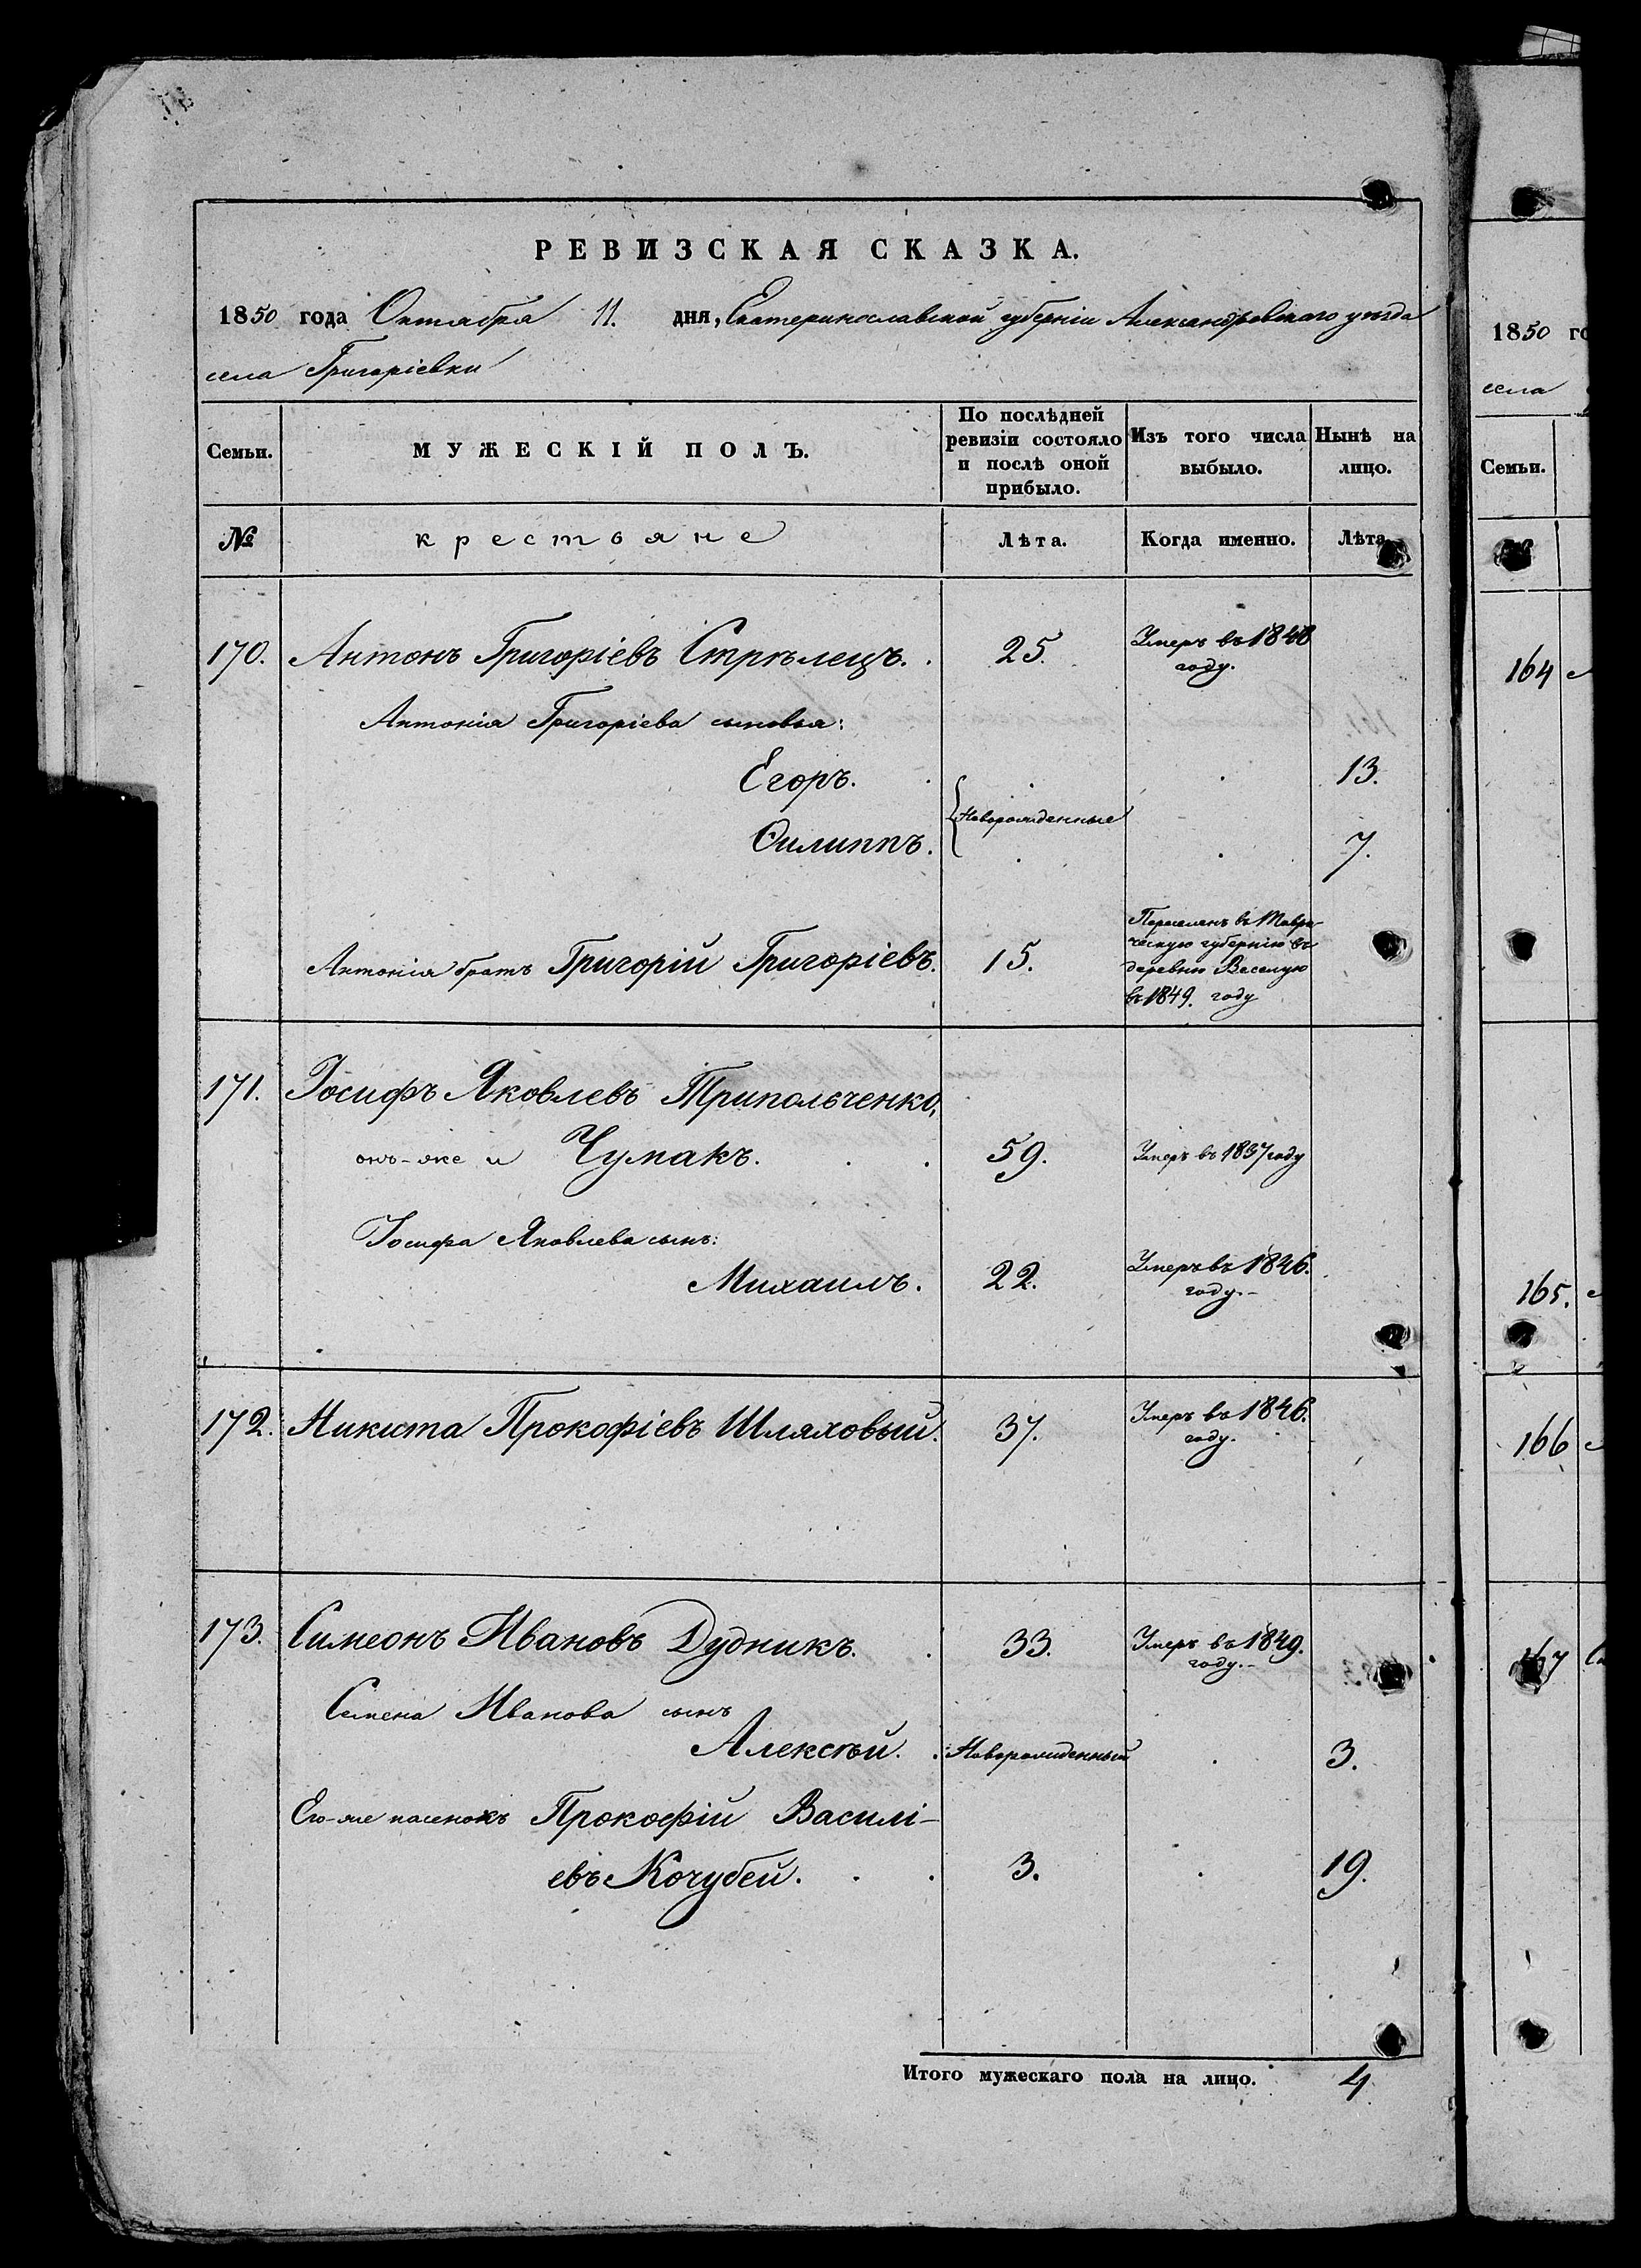 РЕВИЗСКАЯ СКАЗКА.
1850 года Октября 11. дня, Екатеринославской губерніи Александровскаго уѣзда
села Григоріевки
Семьи.
МУЖЕСКІЙ ПОЛЪ.
По послѣдней ревизіи состояло и послѣ оной прибыло.
Изъ того числа выбыло.
Нынѣ на лицо.
№
крестьяне
Лѣта.
Когда именно.
Лѣта.
170. Антонъ Григоріевъ Стрѣлецъ. . 25. Умеръ въ 1848
году.
Антонія Григоріева сыновья:
Егоръ. . 13.
Новорожденные
Филиппъ. 7.
Переселенъ въ Таври-
ческую губернію въ
Антонія братъ Григорій Григоріевъ. 15. деревню Веселую
въ 1849. году
171. Іосифъ Яковлевъ Трипольченко,
онъ-же и Чумакъ. . . 59. Умеръ въ 1837 году
Іосифа Яковлева сынъ:
Михаилъ. 22. Умеръ въ 1846.
году.-
172. Никита Прокофіевъ Шляховый. 37. Умеръ въ 1846.
году.
173. Симеонъ Ивановъ Дудникъ. . 33. Умеръ въ 1849.
году.-
Семена Иванова сынъ
Алексѣй. . Новорожденный . 3.
Его-же пасенокъ Прокофій Василі-
евъ Кочубей. . . 3. . 19.
Итого мужескаго пола на лицо. 4
1850 го
села
Семьи.
164
165.
166
167